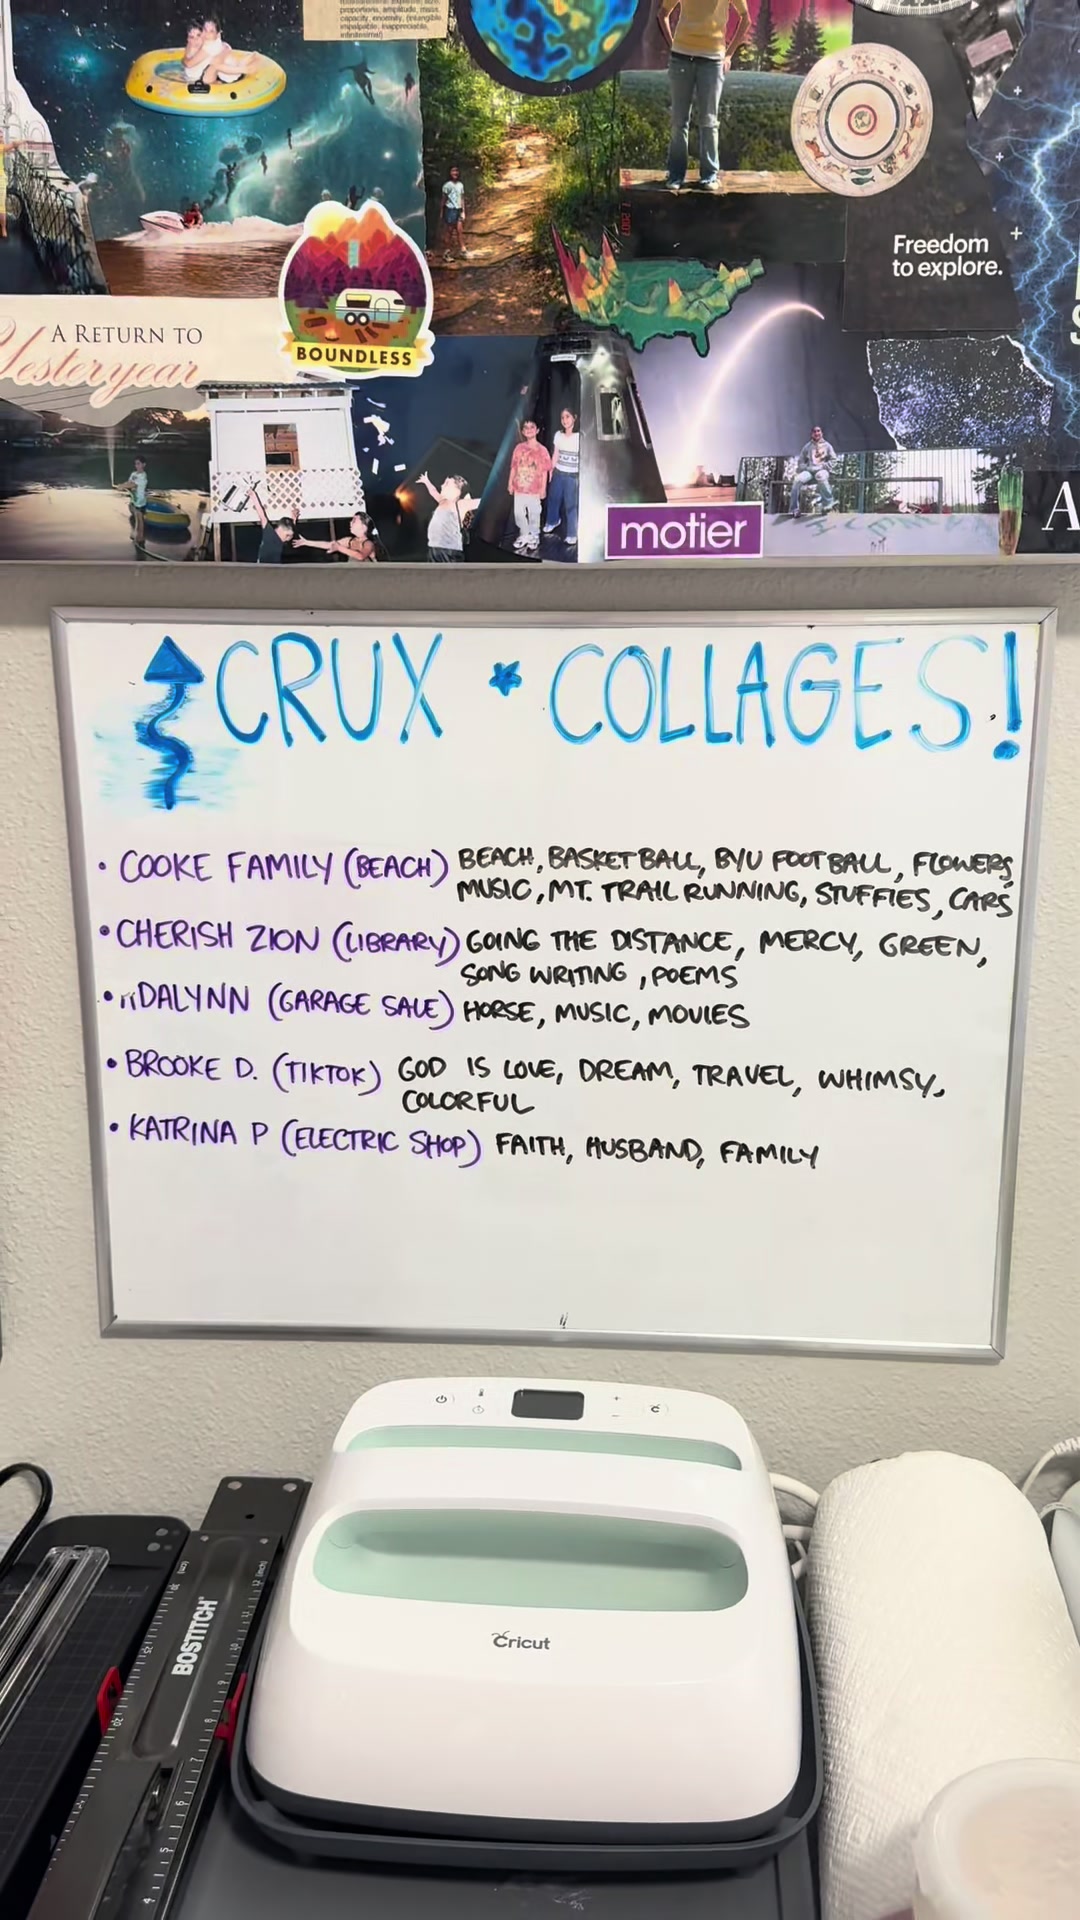 proportions, amplitude, mass,
capacity, enormity, (intangible
impalpable, inappreciable,
infinitesimal)
Freedom
to explore.
A RETURN TO
Yesteryear
BOUNDLESS
motier
A
CRUX * COLLAGES!
• COOKE FAMILY (BEACH) BEACH, BASKETBALL, BYU FOOTBALL, FLOWERS,
MUSIC, MT. TRAIL RUNNING, STUFFIES, CARS
• CHERISH ZION (LIBRARY) GOING THE DISTANCE, MERCY, GREEN,
SONG WRITING, POEMS
DALYNN (GARAGE SALE) HORSE, MUSIC, MOVIES
• BROOKE D. (TIKTOK) GOD IS LOVE, DREAM, TRAVEL, WHIMSY,
COLORFUL
• KATRINA P (ELECTRIC SHOP) FAITH, HUSBAND, FAMILY
Cricut
BOSTITCH